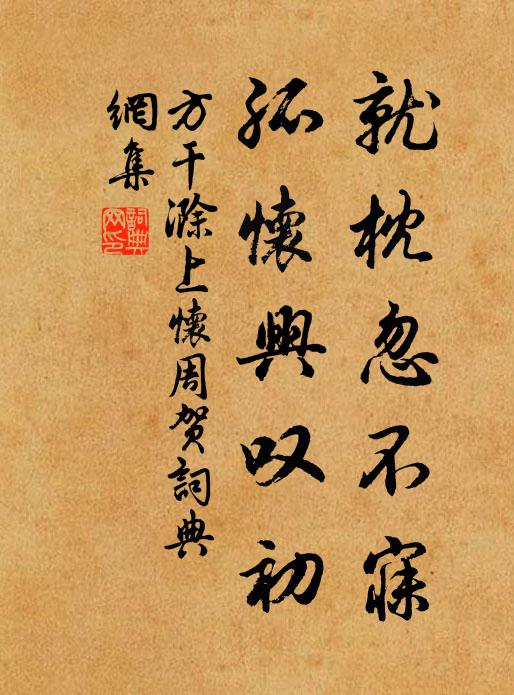 就枕忽不寐
孤懷興叹初
方干滁上懷周贺詞典
網集
詞典網印